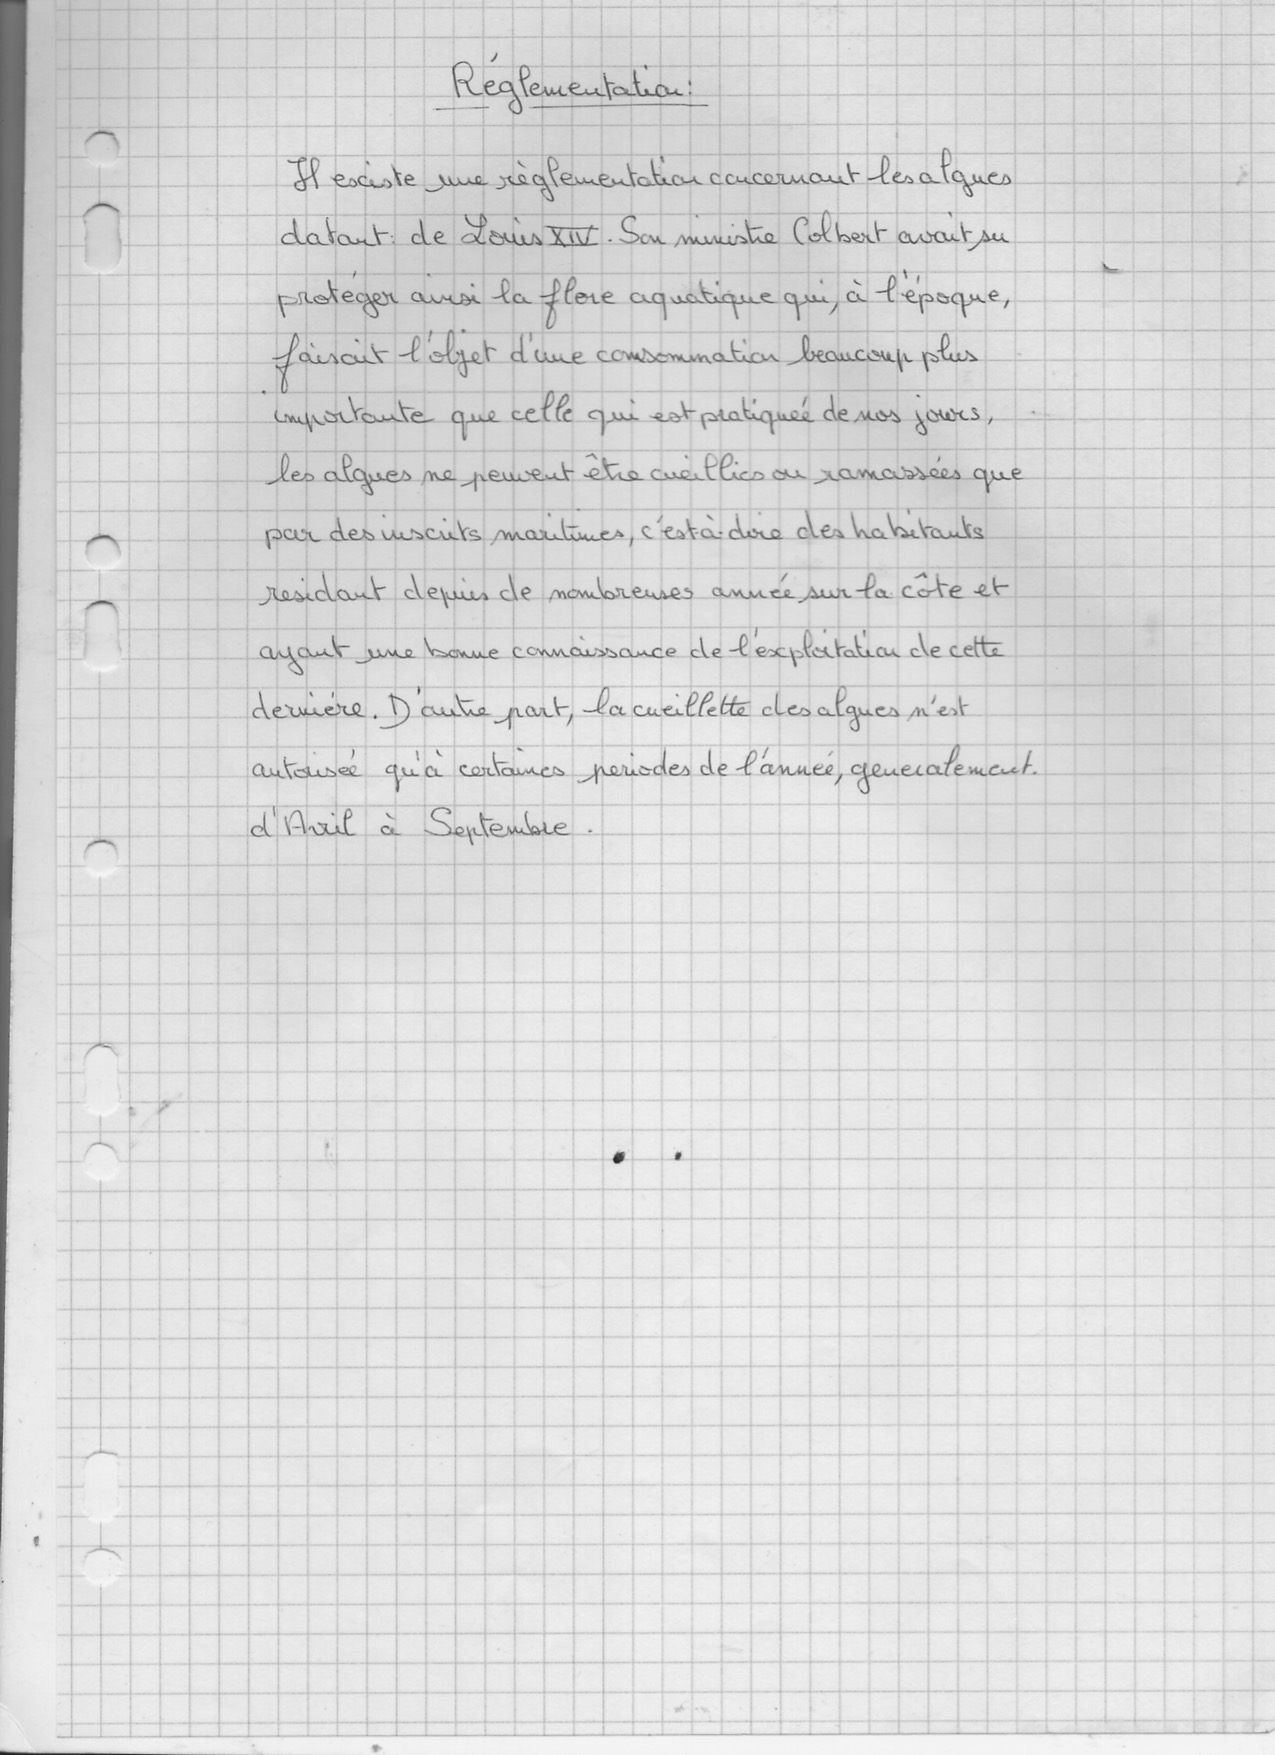 Réglementation:
Il existe une règlementation concernant les algues
datant de Louis XIV. Son ministre Colbert avait su
protéger ainsi la flore aquatique qui, à l'époque,
faisait l'objet d'une consommation beaucoup plus
importante que celle qui est pratiqueé de nos jours,
les algues ne peuvent être cueillies ou ramassées que
par des inscrits maritimes, c'est-à-dire des habitants
residant depuis de nombreuses année sur la côte et
ayant une bonne connaissance de l'exploitation de cette
derniére. D'autre part, la cueillette des algues n'est
autoriseé qu'à certaines periodes de l'anneé, generalement.
d'Avril à Septembre.